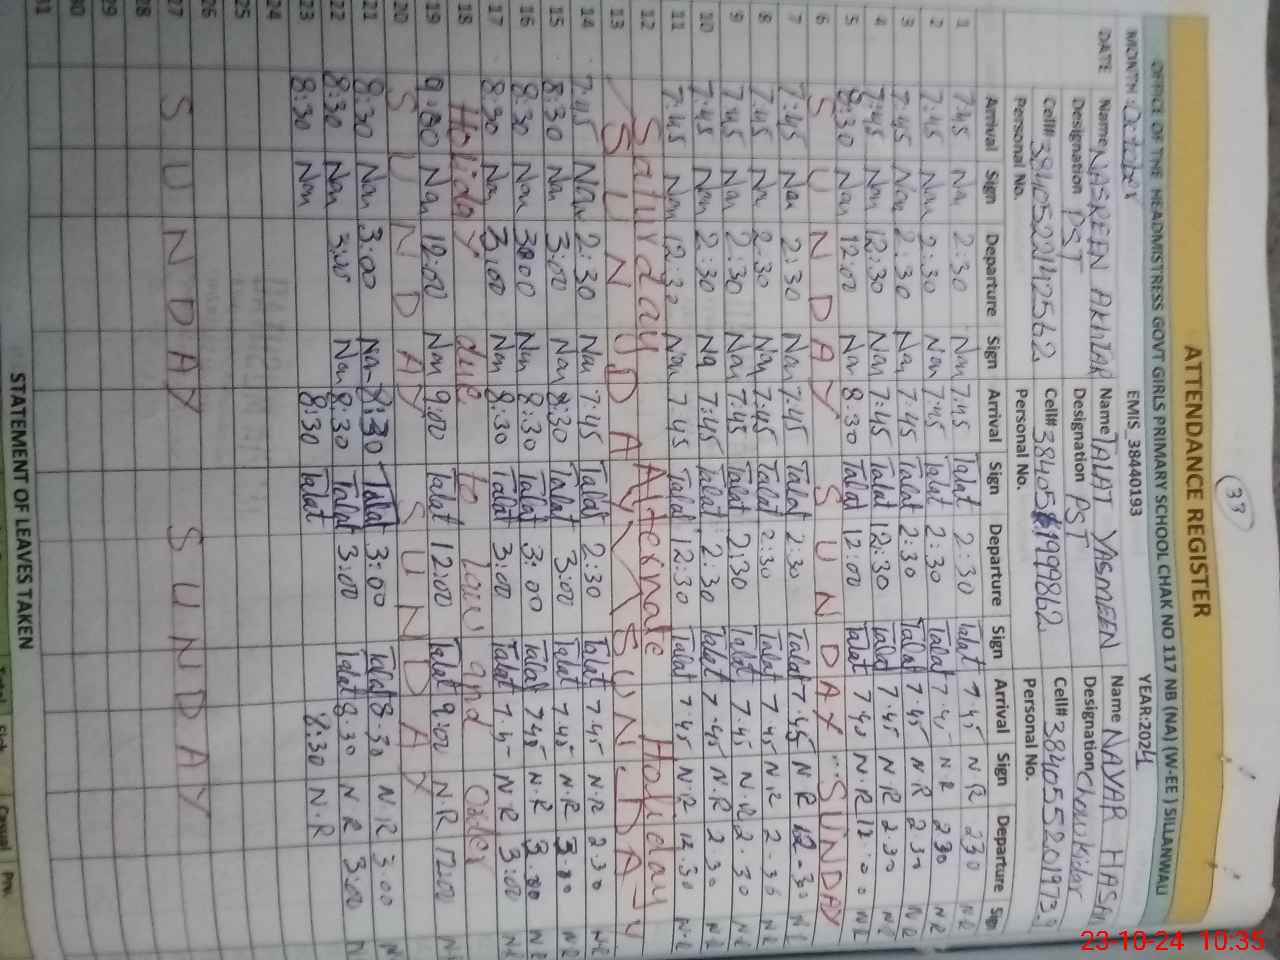 33
ATTENDANCE REGISTER
OFFICE OF THE HEADMISTRESS GOVT GIRLS PRIMARY SCHOOL CHAK NO 117 NB (NA) (W-EE) SILLANWALI
MONTH: October EMIS_38440193 YEAR:2024
DATE Name NASREEN Akhtar Name TALAT YASMEEN Name NAYAR HASH
Designation PST Designation PST Designation Chowkidar
Cell# 3840522142562 Cell# 38405 Cell# 384055201973
Personal No. Personal No. Personal No.
Arrival Sign Departure Sign Arrival Sign Departure Sign Arrival Sign Departure Sign
1 7:45 Nan 2:30 Nan 7:45 Talat 2:30 Talat 7.45 N R 2 30 N R
2 7:45 Nan 2:30 Nan 7:45 Talat 2:30 Talat 7.45 N R 2 30 N R
3 7:45 Nan 2:30 Nan 7:45 Talat 2:30 Talat 7.45 N.R 2 30 N R
4 7:45 Nan 12:30 Nan 7:45 Talat 12:30 Talat 7.45 N R 2.30 N R
5 8:30 Nan 12:00 Nan 8:30 Talat 12:00 Talat 7.45 N.R 12:00 N R
6 SUNDAY SUNDAY SUNDAY
7 7:45 Nan 2:30 Nan 7:45 Talat 2:30 Talat 7.45 N R N R
8 7:45 Nan 2:30 Nan 7:45 Talat 2:30 Talat 7.45 N R 2-30 N R
9 7:45 Nan 2:30 Nan 7:45 Talat 2:30 Talat 7.45 N.R 2-30 N R
10 7:45 Nan 2:30 Na 7:45 Talat 2:30 Talat 7.45 N.R 2 30 N R
11 7:45 Nan 12:30 Nan 7:45 Talat 12:30 Talat 7.45 N.R 12.30 N.R
12 Saturday Alternate Holieday
13 SUNDAY SUNDAY
14 7:45 Nan 2:30 Nan 7:45 Talat 2:30 Talat 7.45 N.R 2.30 N.R
15 8:30 Nan 3:00 Nan 8:30 Talat 3:00 Talat 7.45 N.R 3.00 N R
16 8:30 Nan 3:00 Nan 8:30 Talat 3:00 Talat 7.45 N.R 3.00 N R
17 8:30 Nan 3:00 Nan 8:30 Talat 3:00 Talat 7.45 N.R 3:00 N.R
18 Holiday due to law and Order
19 9:00 Nan 12:00 Nan 9:00 Talat 12:00 Talat 9:00 N.R 12:00 N
20 SUNDAY SUNDAY
21 8:30 Nan 3:00 Nan 8:30 Talat 3:00 Talat 8.30 N R 3.00 N
22 8:30 Nan 3:00 Nan 8:30 Talat 3:00 Talat 8.30 N R 3.00 N
23 8:30 Nan 8:30 Talat 8.30 N.R
24
25
26
27 SUNDAY SUNDAY
28
29
30
31
STATEMENT OF LEAVES TAKEN
Total Sick Casual Prv.
23-10-24 10:35